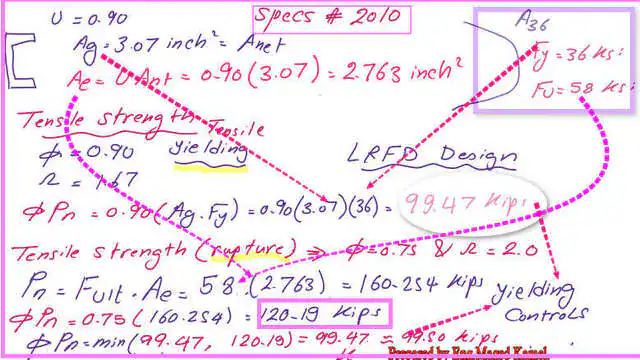 U = 0.90
Specs # 2010
A36
Ag = 3.07 inch² = Anet
Fy = 36 Ksi
Ae = U Ant = 0.90(3.07) = 2.763 inch²
Fu = 58 Ksi
Tensile strength Tensile
yielding
LRFD Design
Φ = 0.90
Ω = 1.67
ΦPn = 0.90(Ag.Fy) = 0.90(3.07)(36) = 99.47 Kips
Tensile strength (rupture) ⇒ Φ = 0.75 & Ω = 2.0
Pn = Fult . Ae = 58.(2.763) = 160.254 Kips
yielding
Controls
ΦPn = 0.75(160.254) = 120.19 Kips
ΦPn = min(99.47, 120.19) = 99.47 ≈ 99.50 Kips
Prepared by Eng Maged Kamel